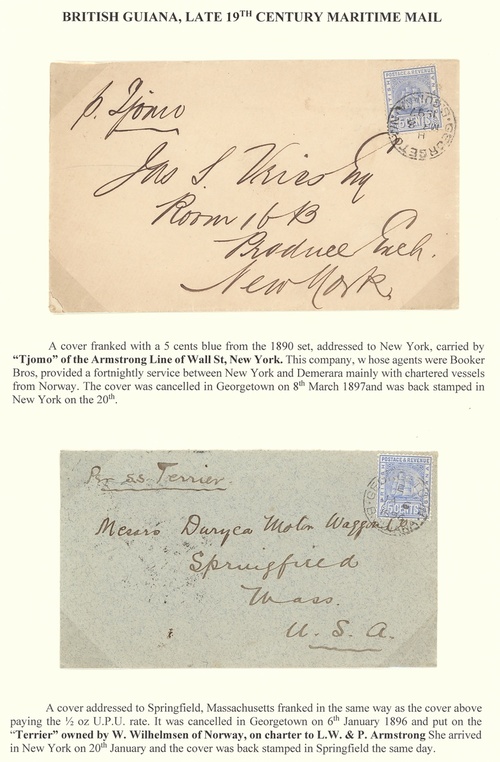 BRITISH GUIANA, LATE 19TH CENTURY MARITIME MAIL
POSTAGE & REVENUE
p. Tjomo
Jas S. Vries Esq
Room 16 B
Produce Exch.
New York
A cover franked with a 5 cents blue from the 1890 set, addressed to New York, carried by
“Tjomo” of the Armstrong Line of Wall St, New York. This company, w hose agents were Booker
Bros, provided a fortnightly service between New York and Demerara mainly with chartered vessels
from Norway. The cover was cancelled in Georgetown on 8th March 1897and was back stamped in
New York on the 20th.
POSTAGE & REVENUE
5 CENTS
Per ss. Terrier.
Messrs Duryea Motor Waggon Co.
Springfield
Mass.
U. S. A.
A cover addressed to Springfield, Massachusetts franked in the same way as the cover above
paying the ½ oz U.P.U. rate. It was cancelled in Georgetown on 6th January 1896 and put on the
“Terrier” owned by W. Wilhelmsen of Norway, on charter to L.W. & P. Armstrong She arrived
in New York on 20th January and the cover was back stamped in Springfield the same day.